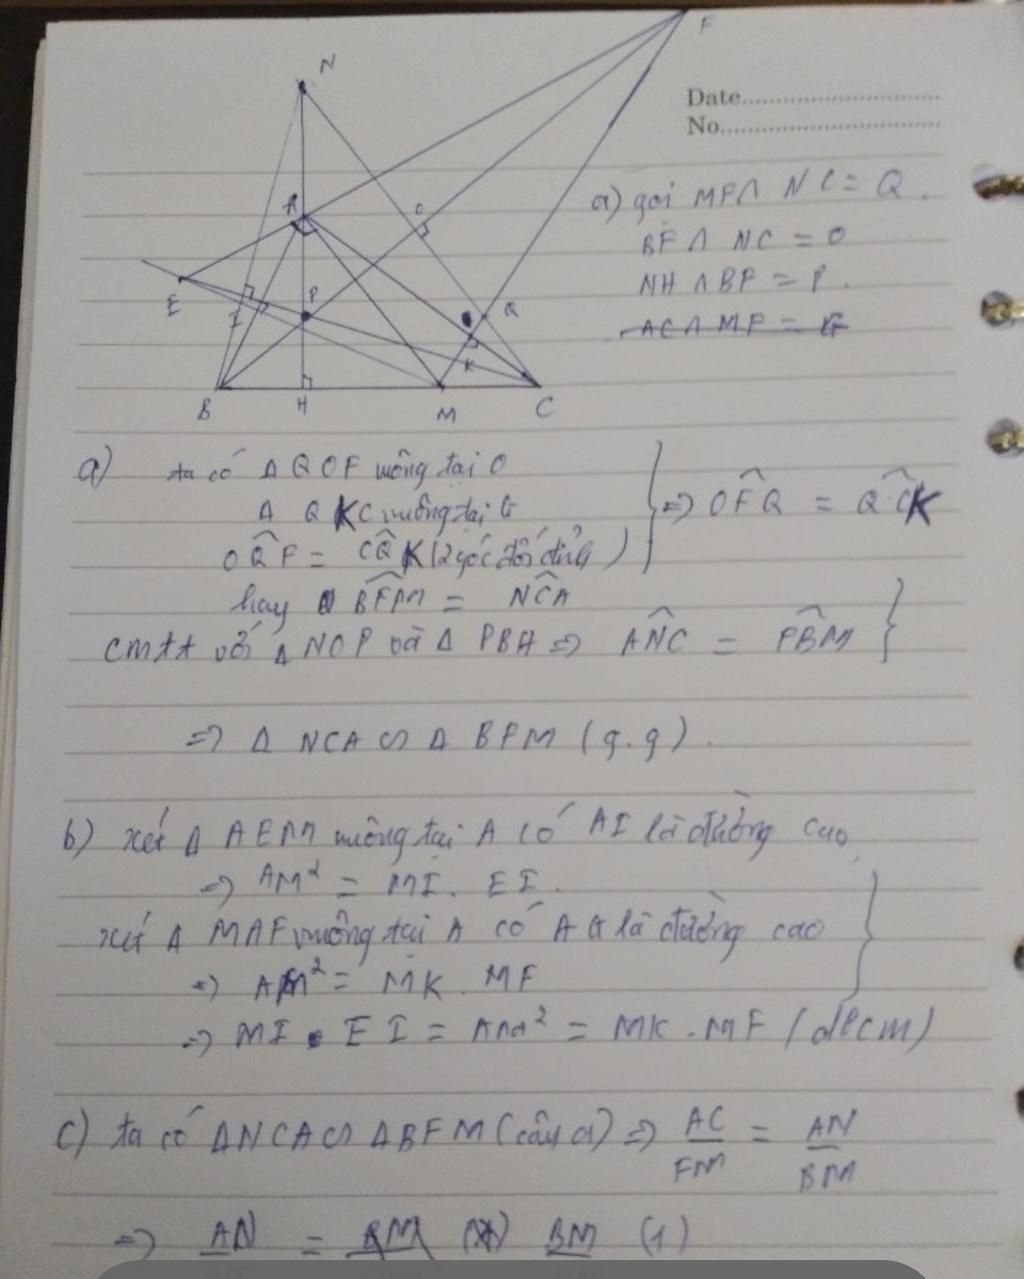 N
F
Date
No.
A
O
a) gọi MF ∩ NC = Q.
BF ∩ NC = O
E
P
NH ∩ BF = P.
I
Q
AC ∩ MF =
K
B H M C
a) ta có Δ QOF vuông tại O
Δ QKC vuông tại G
=> OFQ = QCK
OQF = CQK (2 góc đối đỉnh)
hay BFM = NCA
cmtt với Δ NOP và Δ PBH => ANC = PBM
=> Δ NCA ∽ Δ BFM (g.g).
b) xét Δ AEM vuông tại A có AI là đường cao
=> AM² = MI. EI.
xét Δ MAF vuông tại A có AG là đường cao
=> AM² = MK. MF
=> MI. EI = AM² = MK. MF (đpcm)
c) ta có ΔNCA ∽ ΔBFM (câu a) => AC/FM = AN/BM
=> AN = BM (1)